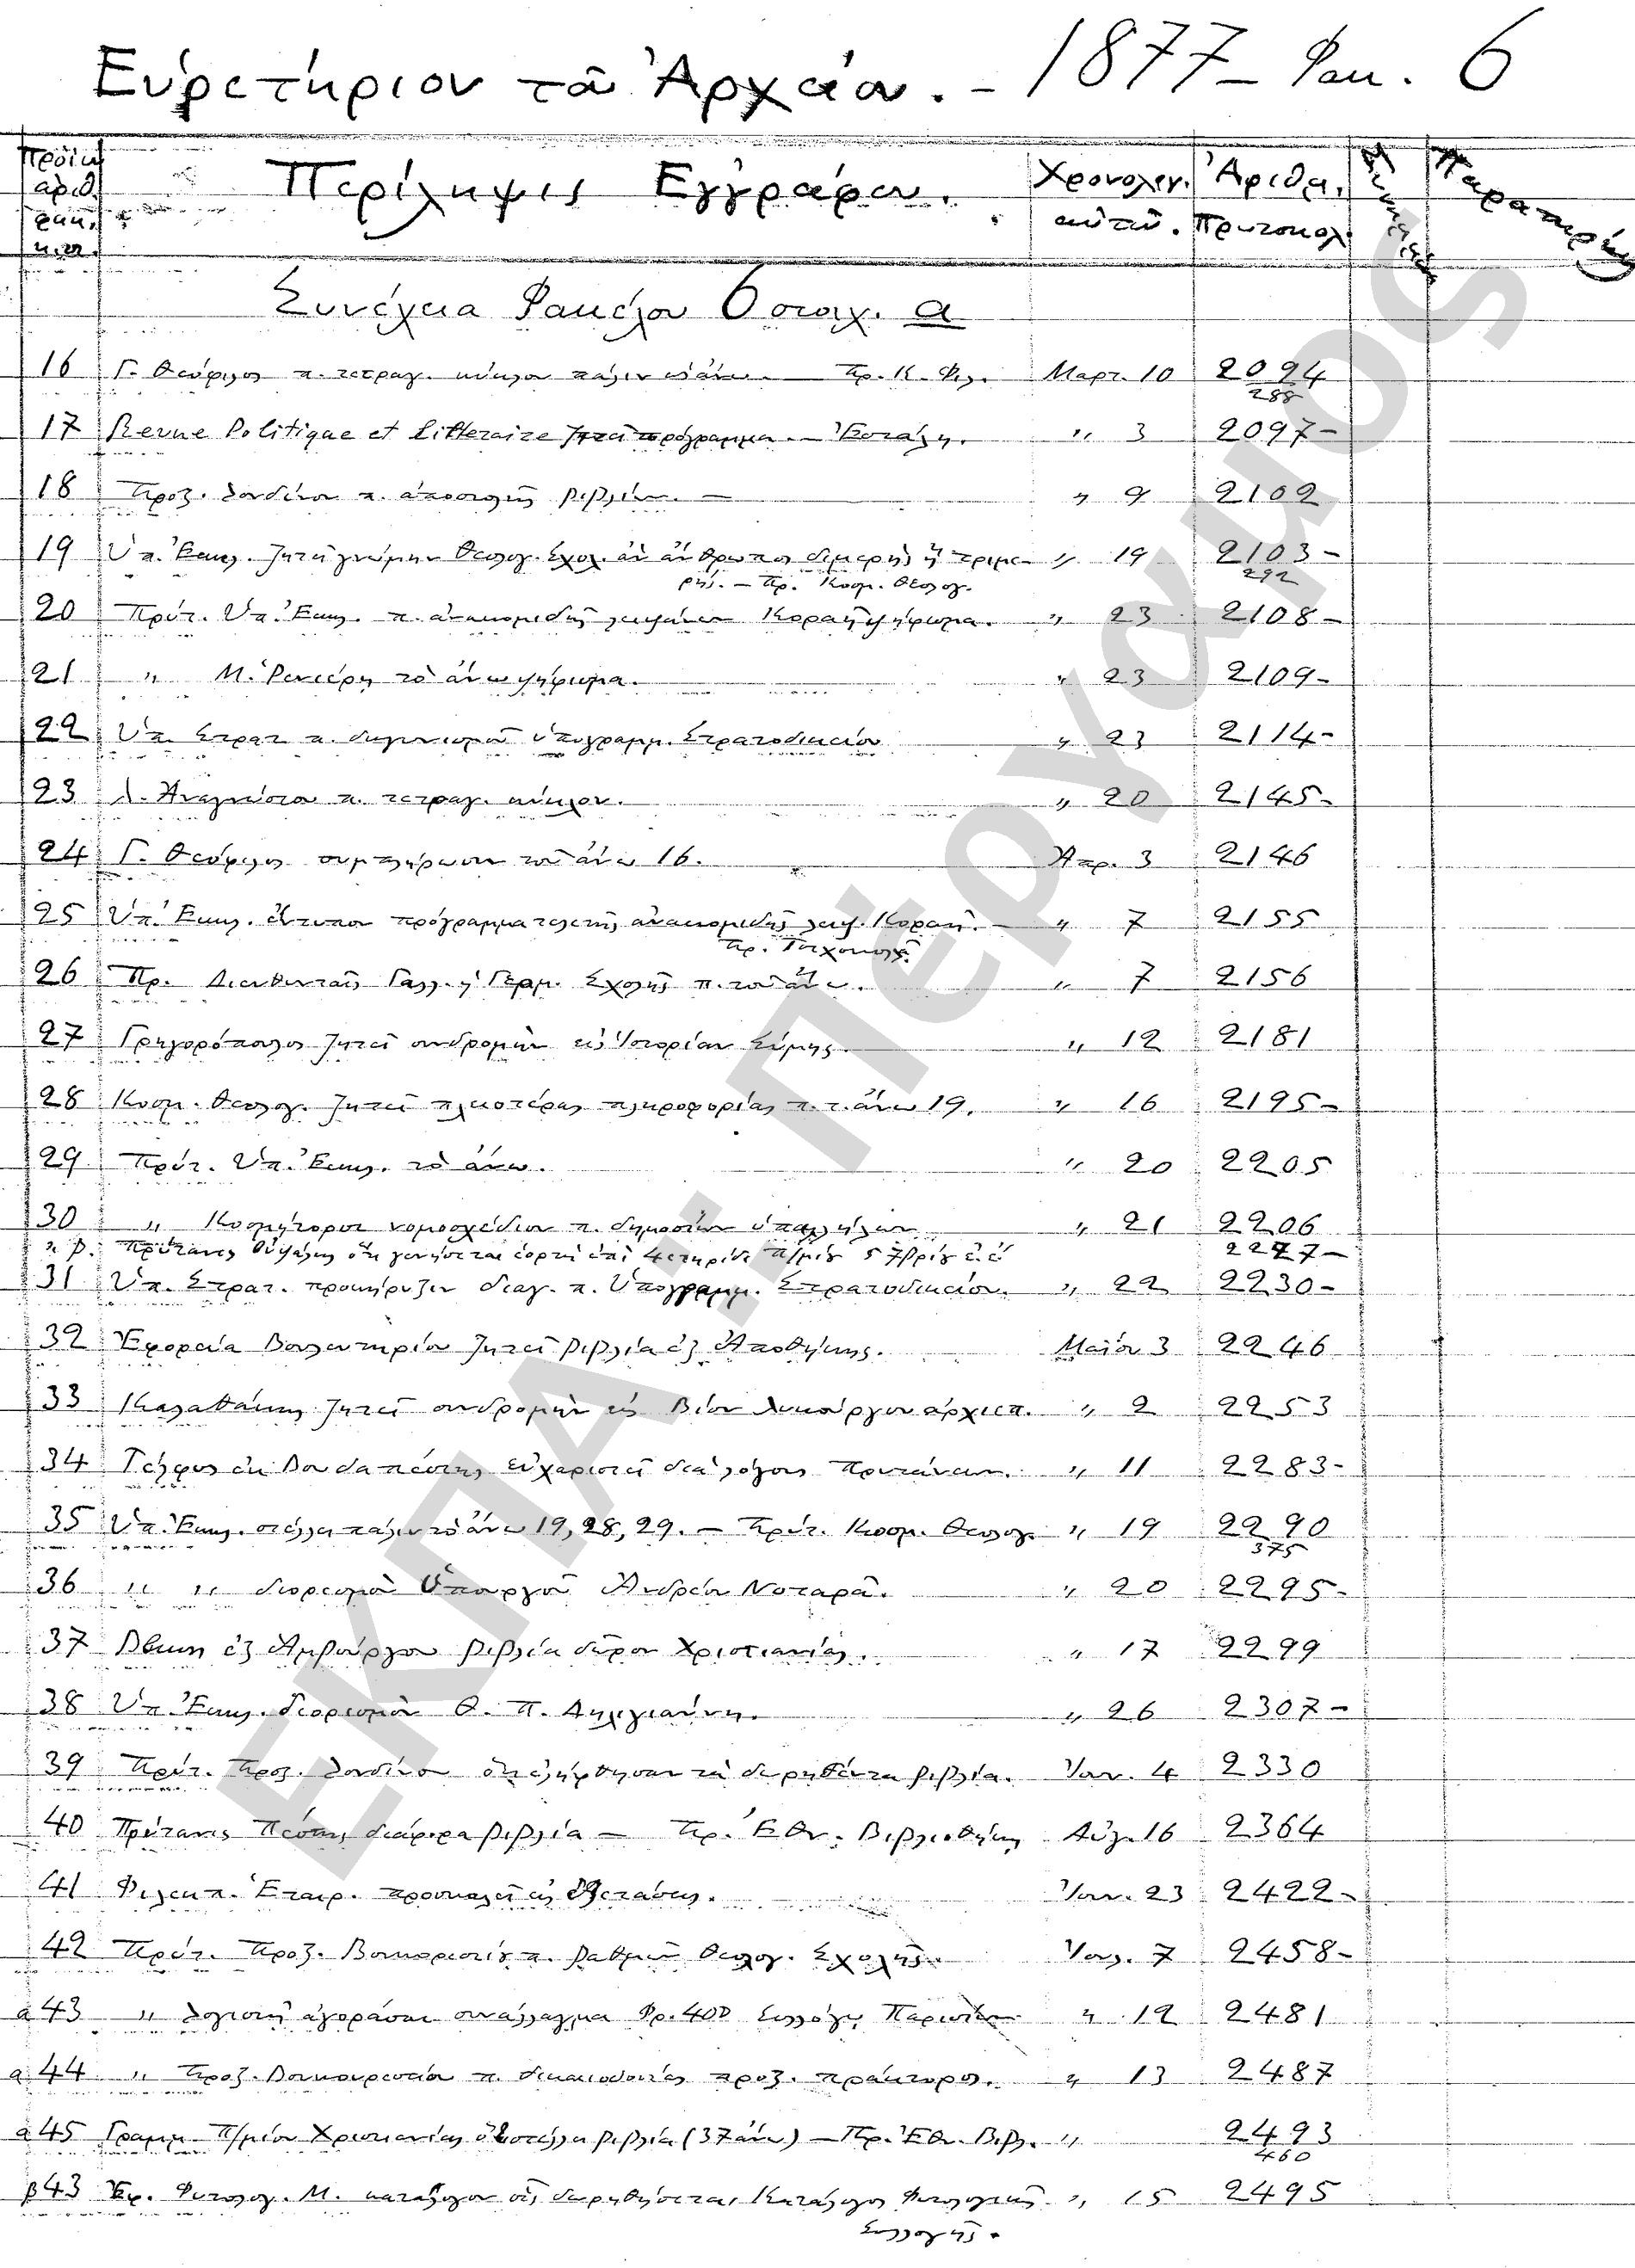 Εὑρετήριον τοῦ Ἀρχείου. - 1877 - Φακ. 6
Περίληψις Ἐγγράφων. Χρονολογ. Ἀριθμ.
αὐτῶν. Πρωτοκολ.
Συνέχεια Φακέλου 6 στοιχ. α
16 Γ. Θεόφιλος π. τετραγ. κύκλου πάλιν Πρ. Κ. Φιλ. Μαρτ. 10 2094
288
17 Revue Politique et Litteraire ζητεῖ πρόγραμμα. - Ἐστάλη. " 3 2097 -
18 Προξ. Λονδίνου π. ἀποστολῆς βιβλίων. - " 9 2102
19 Ὑπ. Ἐκκλ. ζητεῖ γνώμην Θεολογ. Σχολ. ἂν ἄνθρωπος διμερὴς ἢ τριμε- " 19 2103 -
ρής. - Πρ. Κοσμ. Θεολογ. 292
20 Πρύτ. Ὑπ. Ἐκκλ. π. ἀνακομιδῆς λειψάνων Κοραῆ ψήφισμα. " 23 2108 -
21 " Μ. Ρενιέρῃ τὸ ἄνω ψήφισμα. " 23 2109 -
22 Ὑπ. Στρατ. π. διαγωνισμοῦ ὑπογραμμ. Στρατοδικείου " 23 2114 -
23 Δ. Ἀναγνώστου π. τετραγ. κύκλου. " 20 2145 -
24 Γ. Θεόφιλος συμπλήρωσιν τοῦ ἄνω 16. Ἀπρ. 3 2146
25 Ὑπ. Ἐκκλ. ἔντυπον πρόγραμμα τελετῆς ἀνακομιδῆς λειψ. Κοραῆ. - " 7 2155
26 Πρ. Διευθυντὰς Γαλλ. ἢ Γερμ. Σχολῆς π. τοῦ ἄνω. " 7 2156
27 Γρηγορόπουλος ζητεῖ συνδρομὴν εἰς Ἱστορίαν Σύμης. " 12 2181
28 Κοσμ. Θεολογ. ζητεῖ πλειοτέρας πληροφορίας π. τ. ἄνω 19. " 16 2195 -
29 Πρύτ. Ὑπ. Ἐκκλ. τὸ ἄνω. " 20 2205
30 " Κοσμήτορσι νομοσχέδιον π. δημοσίων ὑπαλλήλων " 21 2206
" β. Πρύτανις 2277 -
31 Ὑπ. Στρατ. προκήρυξιν διαγ. π. Ὑπογραμμ. Στρατοδικείου. " 22 2230 -
32 Ἐφορεία Βουλευτηρίου ζητεῖ βιβλία ἐξ Ἀποθήκης. Μαΐου 3 2246
33 Καλαθάκης ζητεῖ συνδρομὴν εἰς Βίον Λυκούργου ἀρχιεπ. " 2 2253
34 Τέλφυς ἐκ Βουδαπέστης εὐχαριστεῖ διὰ λόγους Πρυτάνεων. " 11 2283 -
35 Ὑπ. Ἐκκλ. στέλλει πάλιν τὸ ἄνω 19, 28, 29. - Πρύτ. Κοσμ. Θεολογ. " 19 2290
375
36 " " διορισμὸν Ὑπουργοῦ Ἀνδρέου Νοταρᾶ. " 20 2295 -
37 ἐξ Ἁμβούργου βιβλία δῶρον Χριστιανίας. " 17 2299
38 Ὑπ. Ἐκκλ. διορισμὸν Θ. Π. Δηλιγιάννη. " 26 2307 -
39 Πρύτ. Προξ. Λονδίνου ὅτι ἐλήφθησαν τὰ δωρηθέντα βιβλία. Ἰουν. 4 2330
40 Πρύτανις Πέστης διάφορα βιβλία - Πρ. Ἐθν. Βιβλιοθήκης Αὐγ. 16 2364
41 Φιλεκπ. Ἑταιρ. προσκαλεῖ εἰς ἐξετάσεις. Ἰουν. 23 2422 -
42 Πρύτ. Προξ. Βουκουρεστίου π. βαθμῶν Θεολογ. Σχολῆς. Ἰουλ. 7 2458 -
α 43 " Λογιστῇ ἀγοράσαι συνάλλαγμα Φρ. 400 Συλλόγῳ Παρισίων " 12 2481
α 44 " Προξ. Βουκουρεστίου π. δικαιοδοσίας προξ. πράκτορος. " 13 2487
α 45 Γραμμ. Π/μίου Χριστιανίας ἀποστέλλει βιβλία (37 ἄνω) - Πρ. Ἐθν. Βιβλ. " 2493
460
β 43 Ἐφ. Φυσιολογ. Μ. κατάλογον οἷς δωρηθήσεται Κατάλογος Φυσιολογικῆς " 15 2495
Συλλογῆς.
ΕΚΠΑ: Πέργαμος